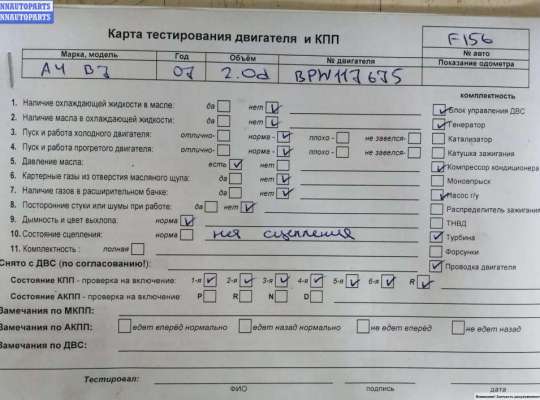 NNAUTOPARTS
NNAUTOPARTS
Карта тестирования двигателя и КПП
F156
№ авто
Марка, модель Год Объём № двигателя Показание одометра
A4 B7 07 2.0d BPW117675
комплектность
1. Наличие охлаждающей жидкости в масле: да нет
2. Наличие масла в охлаждающей жидкости: да нет
3. Пуск и работа холодного двигателя: отлично- норма - плохо - не завелся-
4. Пуск и работа прогретого двигателя: отлично- норма - плохо - не завелся-
5. Давление масла: есть нет
6. Картерные газы из отверстия масляного щупа: да нет
7. Наличие газов в расширительном бачке: да нет
8. Посторонние стуки или шумы при работе: да нет
9. Дымность и цвет выхлопа: норма
10. Состояние сцепления: норма нет сцепления
11. Комплектность : полная
Блок управления ДВС
Генератор
Катализатор
Катушка зажигания
Компрессор кондиционера
Моновпрыск
Насос г/у
Распределитель зажигания
ТНВД
Турбина
Форсунки
Проводка двигателя
Снято с ДВС (по согласованию!):
Состояние КПП - проверка на включение: 1-я 2-я 3-я 4-я 5-я 6-я R
Состояние АКПП - проверка на включение P R N D
Замечания по МКПП:
Замечания по АКПП: едет вперёд нормально едет назад нормально не едет вперёд не едет назад
Замечания по ДВС:
Тестировал:
ФИО подпись дата